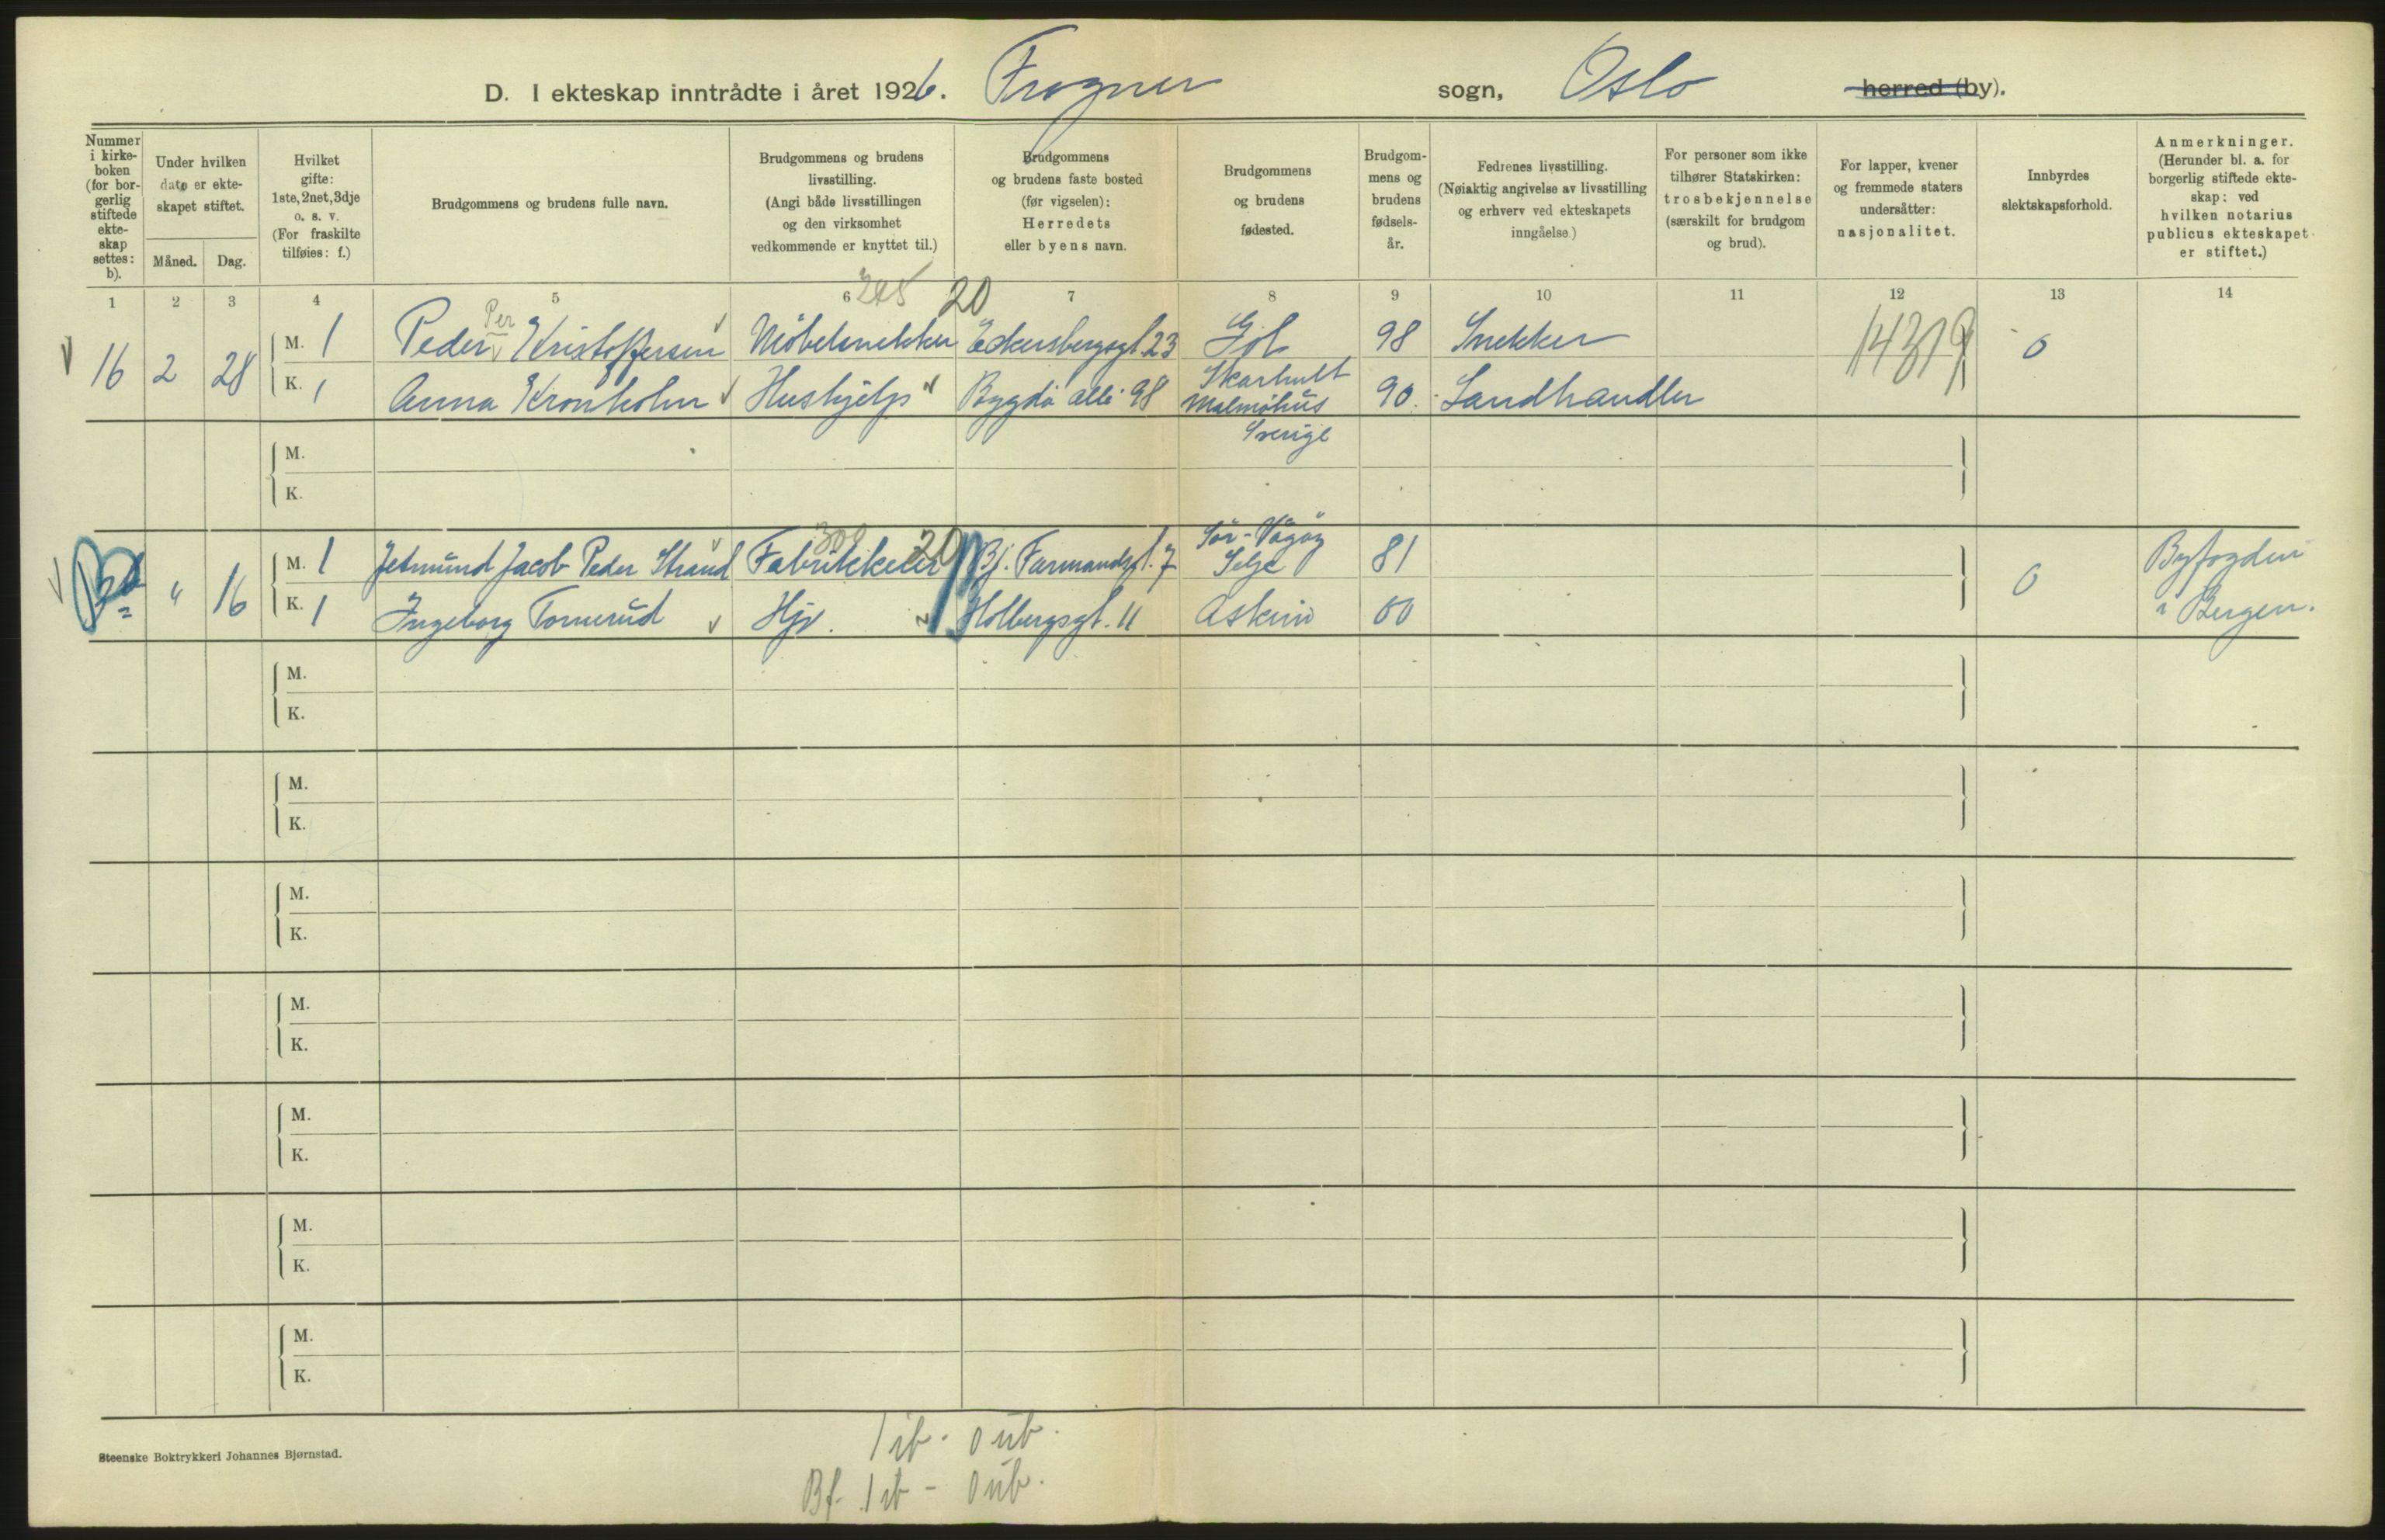 D. I ekteskap inntrådte i året 1926. Frogner sogn, Oslo herred (by).
Nummer i kirke-boken (for bor-gerlig stiftede ekte-skap settes: b).
Under hvilken dato er ekte-skapet stiftet.
Måned. Dag.
Hvilket gifte: 1ste, 2net, 3dje o. s. v. (For fraskilte tilføies: f.)
Brudgommens og brudens fulle navn.
Brudgommens og brudens livsstilling. (Angi både livsstillingen og den virksomhet vedkommende er knyttet til.)
Brudgommens og brudens faste bosted (før vigselen): Herredets eller byens navn.
Brudgommens og brudens fødested.
Brudgom-mens og brudens fødsels-år.
Fedrenes livsstilling. (Nøiaktig angivelse av livsstilling og erhverv ved ekteskapets inngåelse.)
For personer som ikke tilhører Statskirken: trosbekjennelse (særskilt for brudgom og brud).
For lapper, kvener og fremmede staters undersåtter: nasjonalitet.
Innbyrdes slektskapsforhold.
Anmerkninger. (Herunder bl. a. for borgerlig stiftede ekte-skap: ved hvilken notarius publicus ekteskapet er stiftet.)
1 2 3 4 5 6 7 8 9 10 11 12 13 14
20
Per
16 2 28 M. 1 Peder Kristoffersen Möbelsnekker Eckersbergsgt. 23 Gol 98 Snekker 14319 0
K. 1 Anna Kronholm Hushjelp Bygdö allé 98 Skarhult Malmöhus Sverige 90. Landhandler
M.
K.
300 20
" 16 M. 1 Jetmund Jacob Peder Strand Fabrikkeier Bj. Farmandsgt. 7 Sör-Vågöy Selje 81 0 Byfogden i Bergen.
K. 1 Ingeborg Tomerud Hjv. Holbergsgt. 11 Askim 00
M.
K.
M.
K.
M.
K.
M.
K.
M.
K.
M.
K.
M.
K.
Steenske Boktrykkeri Johannes Bjørnstad.
1 ib. 0 ub.
Bf. 1 ib - 0 ub.